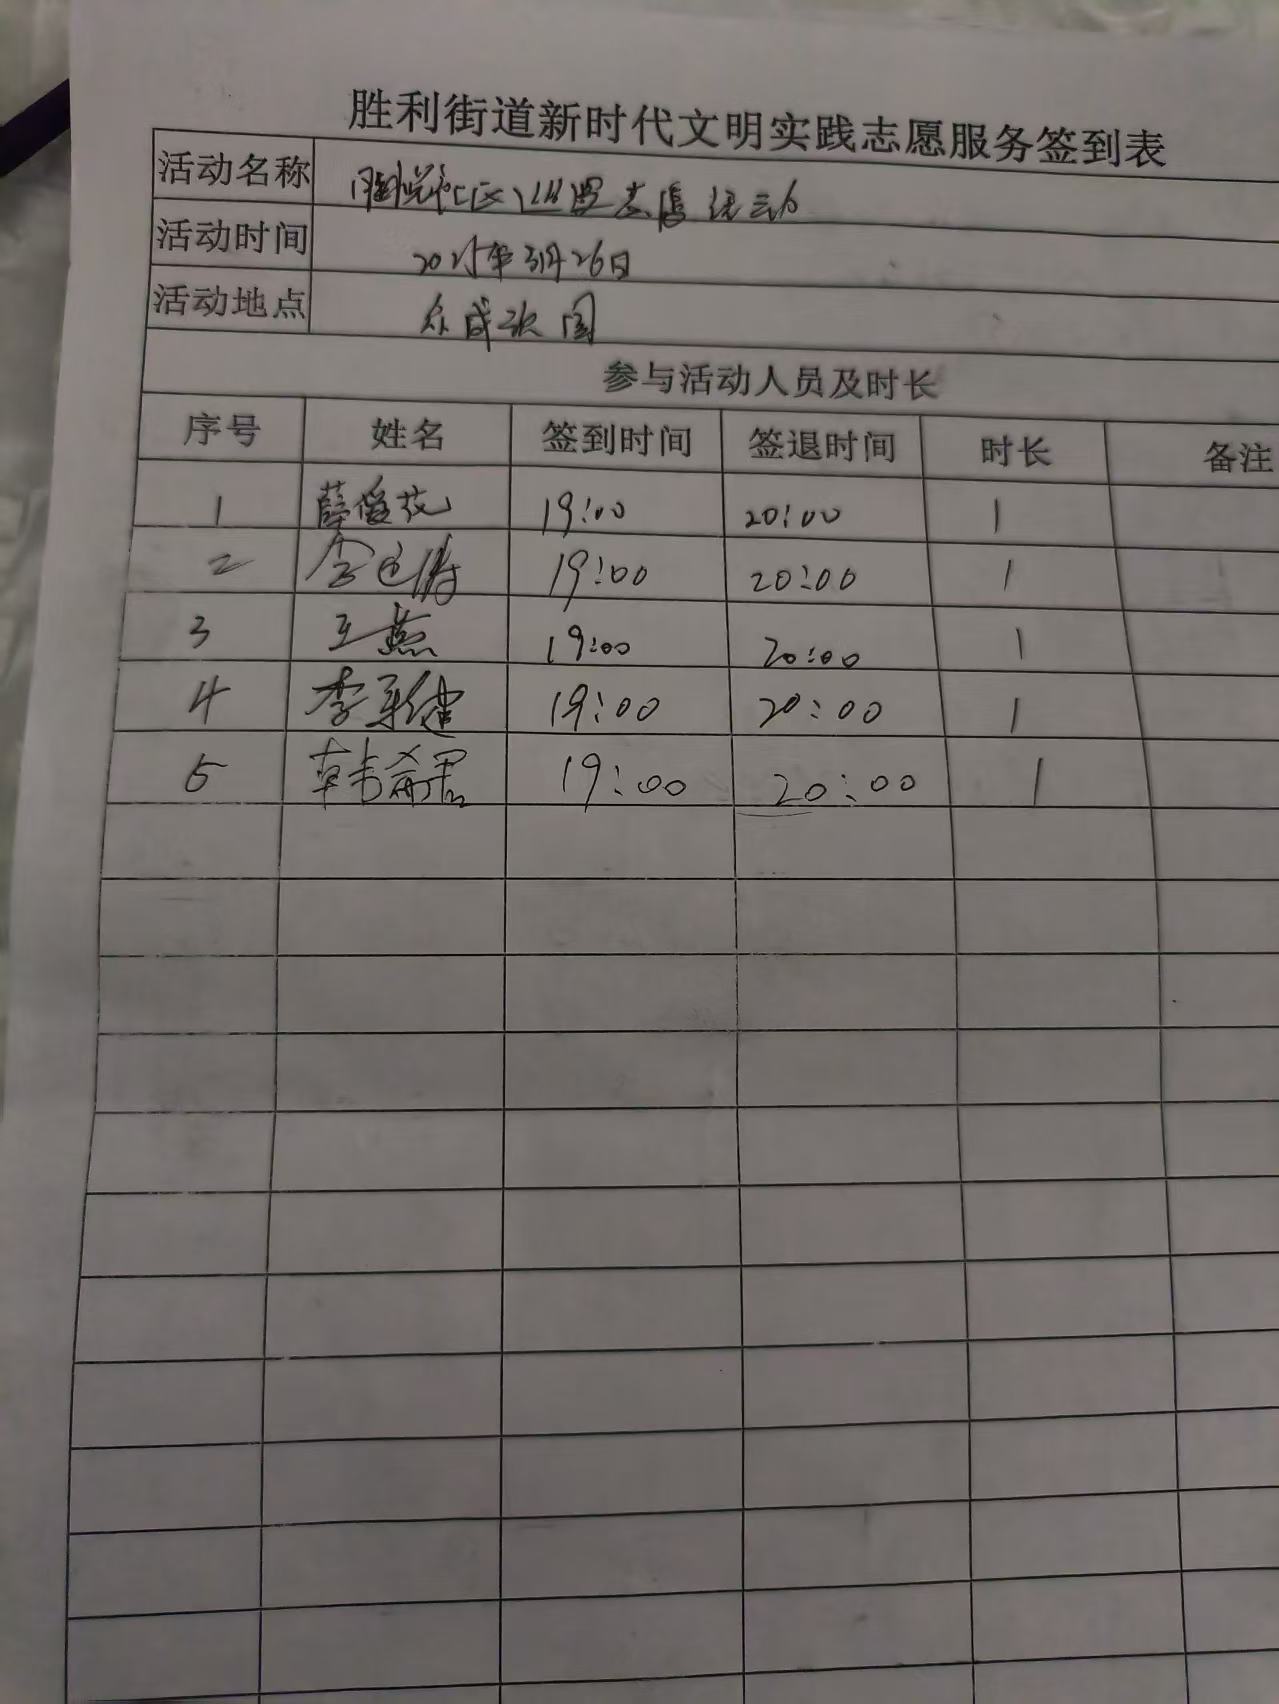 胜利街道新时代文明实践志愿服务签到表
活动名称 社区巡逻志愿活动
活动时间 2025年3月26日
活动地点 众成 园
参与活动人员及时长
序号 姓名 签到时间 签退时间 时长 备注
1 薛爱花 19:00 20:00 1
2 19:00 20:00 1
3 王燕 19:00 20:00 1
4 李 健 19:00 20:00 1
5 韩希君 19:00 20:00 1